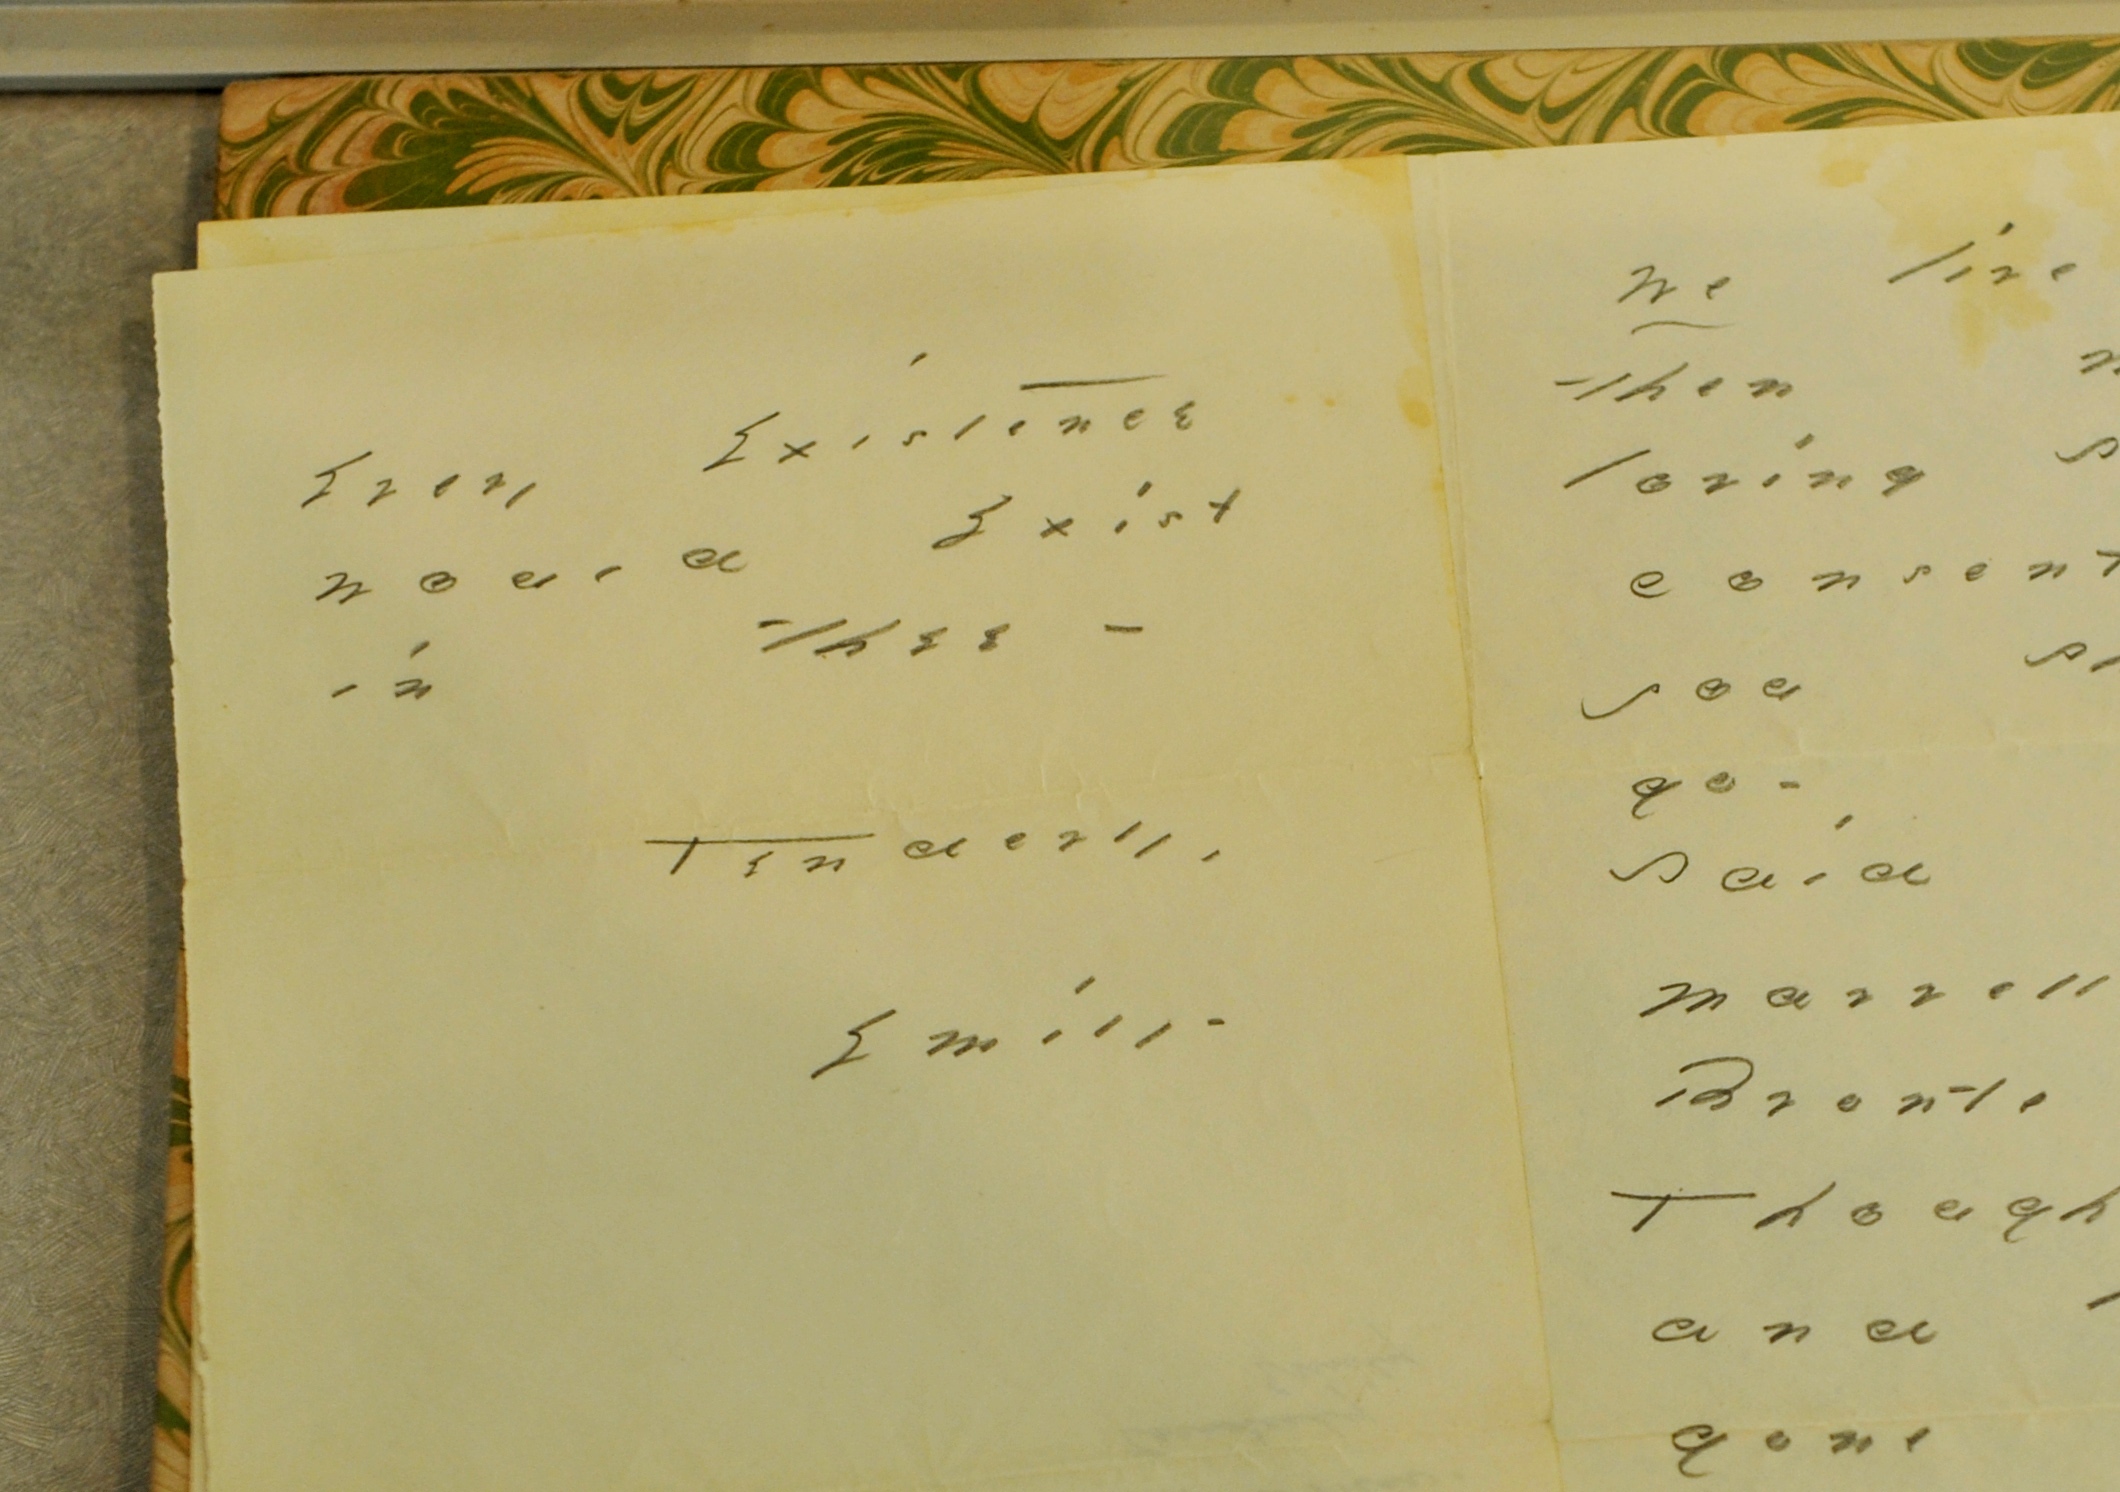 Every Existence
would Exist
in thee -
Tenderly,
Emily -
We live
then
loving
consent
you
go -
said
marvell
Bronte
Though
and
gone